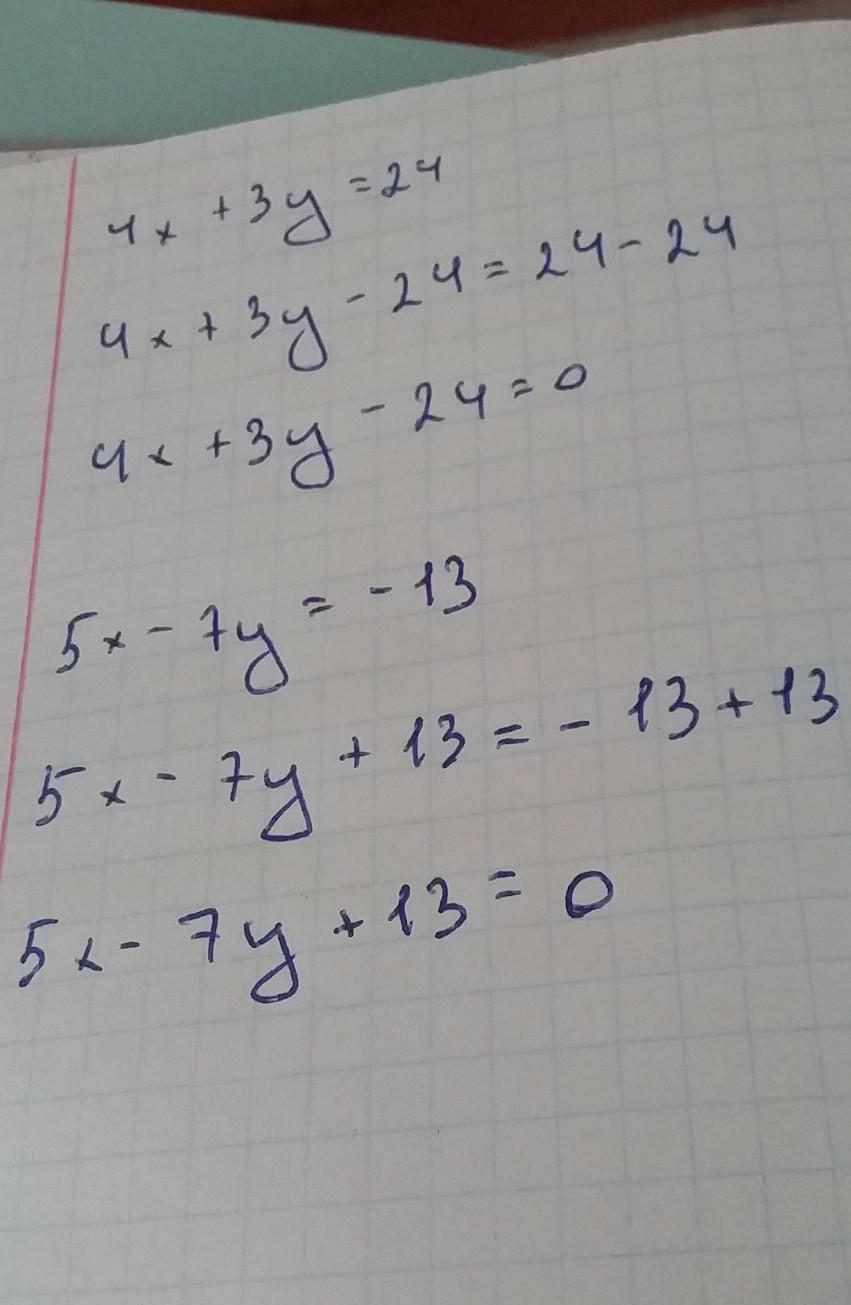 4x + 3y = 24
4x + 3y - 24 = 24 - 24
4x + 3y - 24 = 0
5x - 7y = - 13
5x - 7y + 13 = - 13 + 13
5x - 7y + 13 = 0